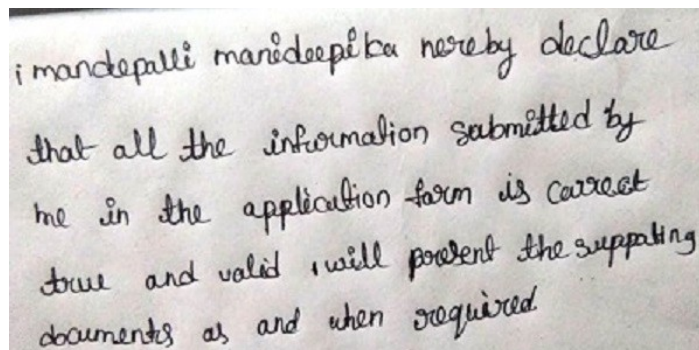 i mandepalli manideepika hereby declare
that all the information submitted by
me in the application form is correct
true and valid i will present the suppoting
documents as and when required